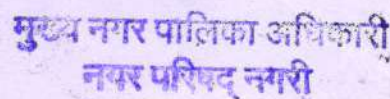 मुख्य नगर पालिका अधिकारी
नगर परिषद् नगरी